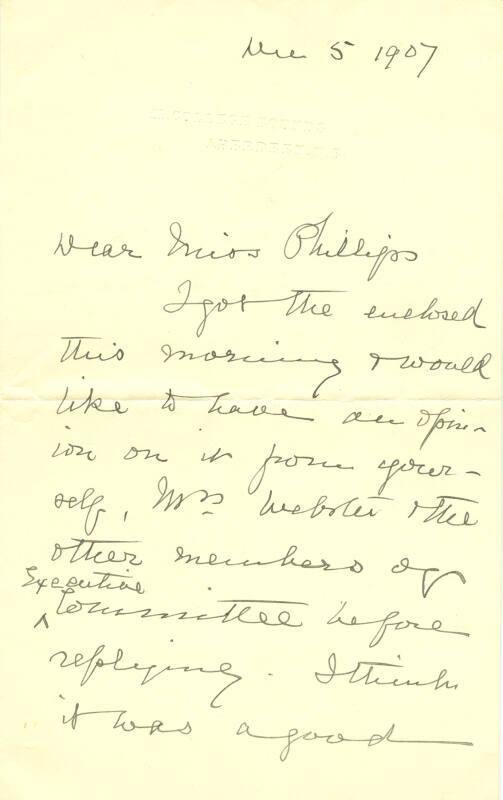 Dec 5 1907
COLLEGE BOUNDS
ABERDEEN, N.B.
Dear Miss Phillips
I got the enclosed
this morning & would
like to have an opin-
ion on it from your-
self, Mrs Webster & the
other members of
Executive
^ Committee before
replying. I think
it was a good